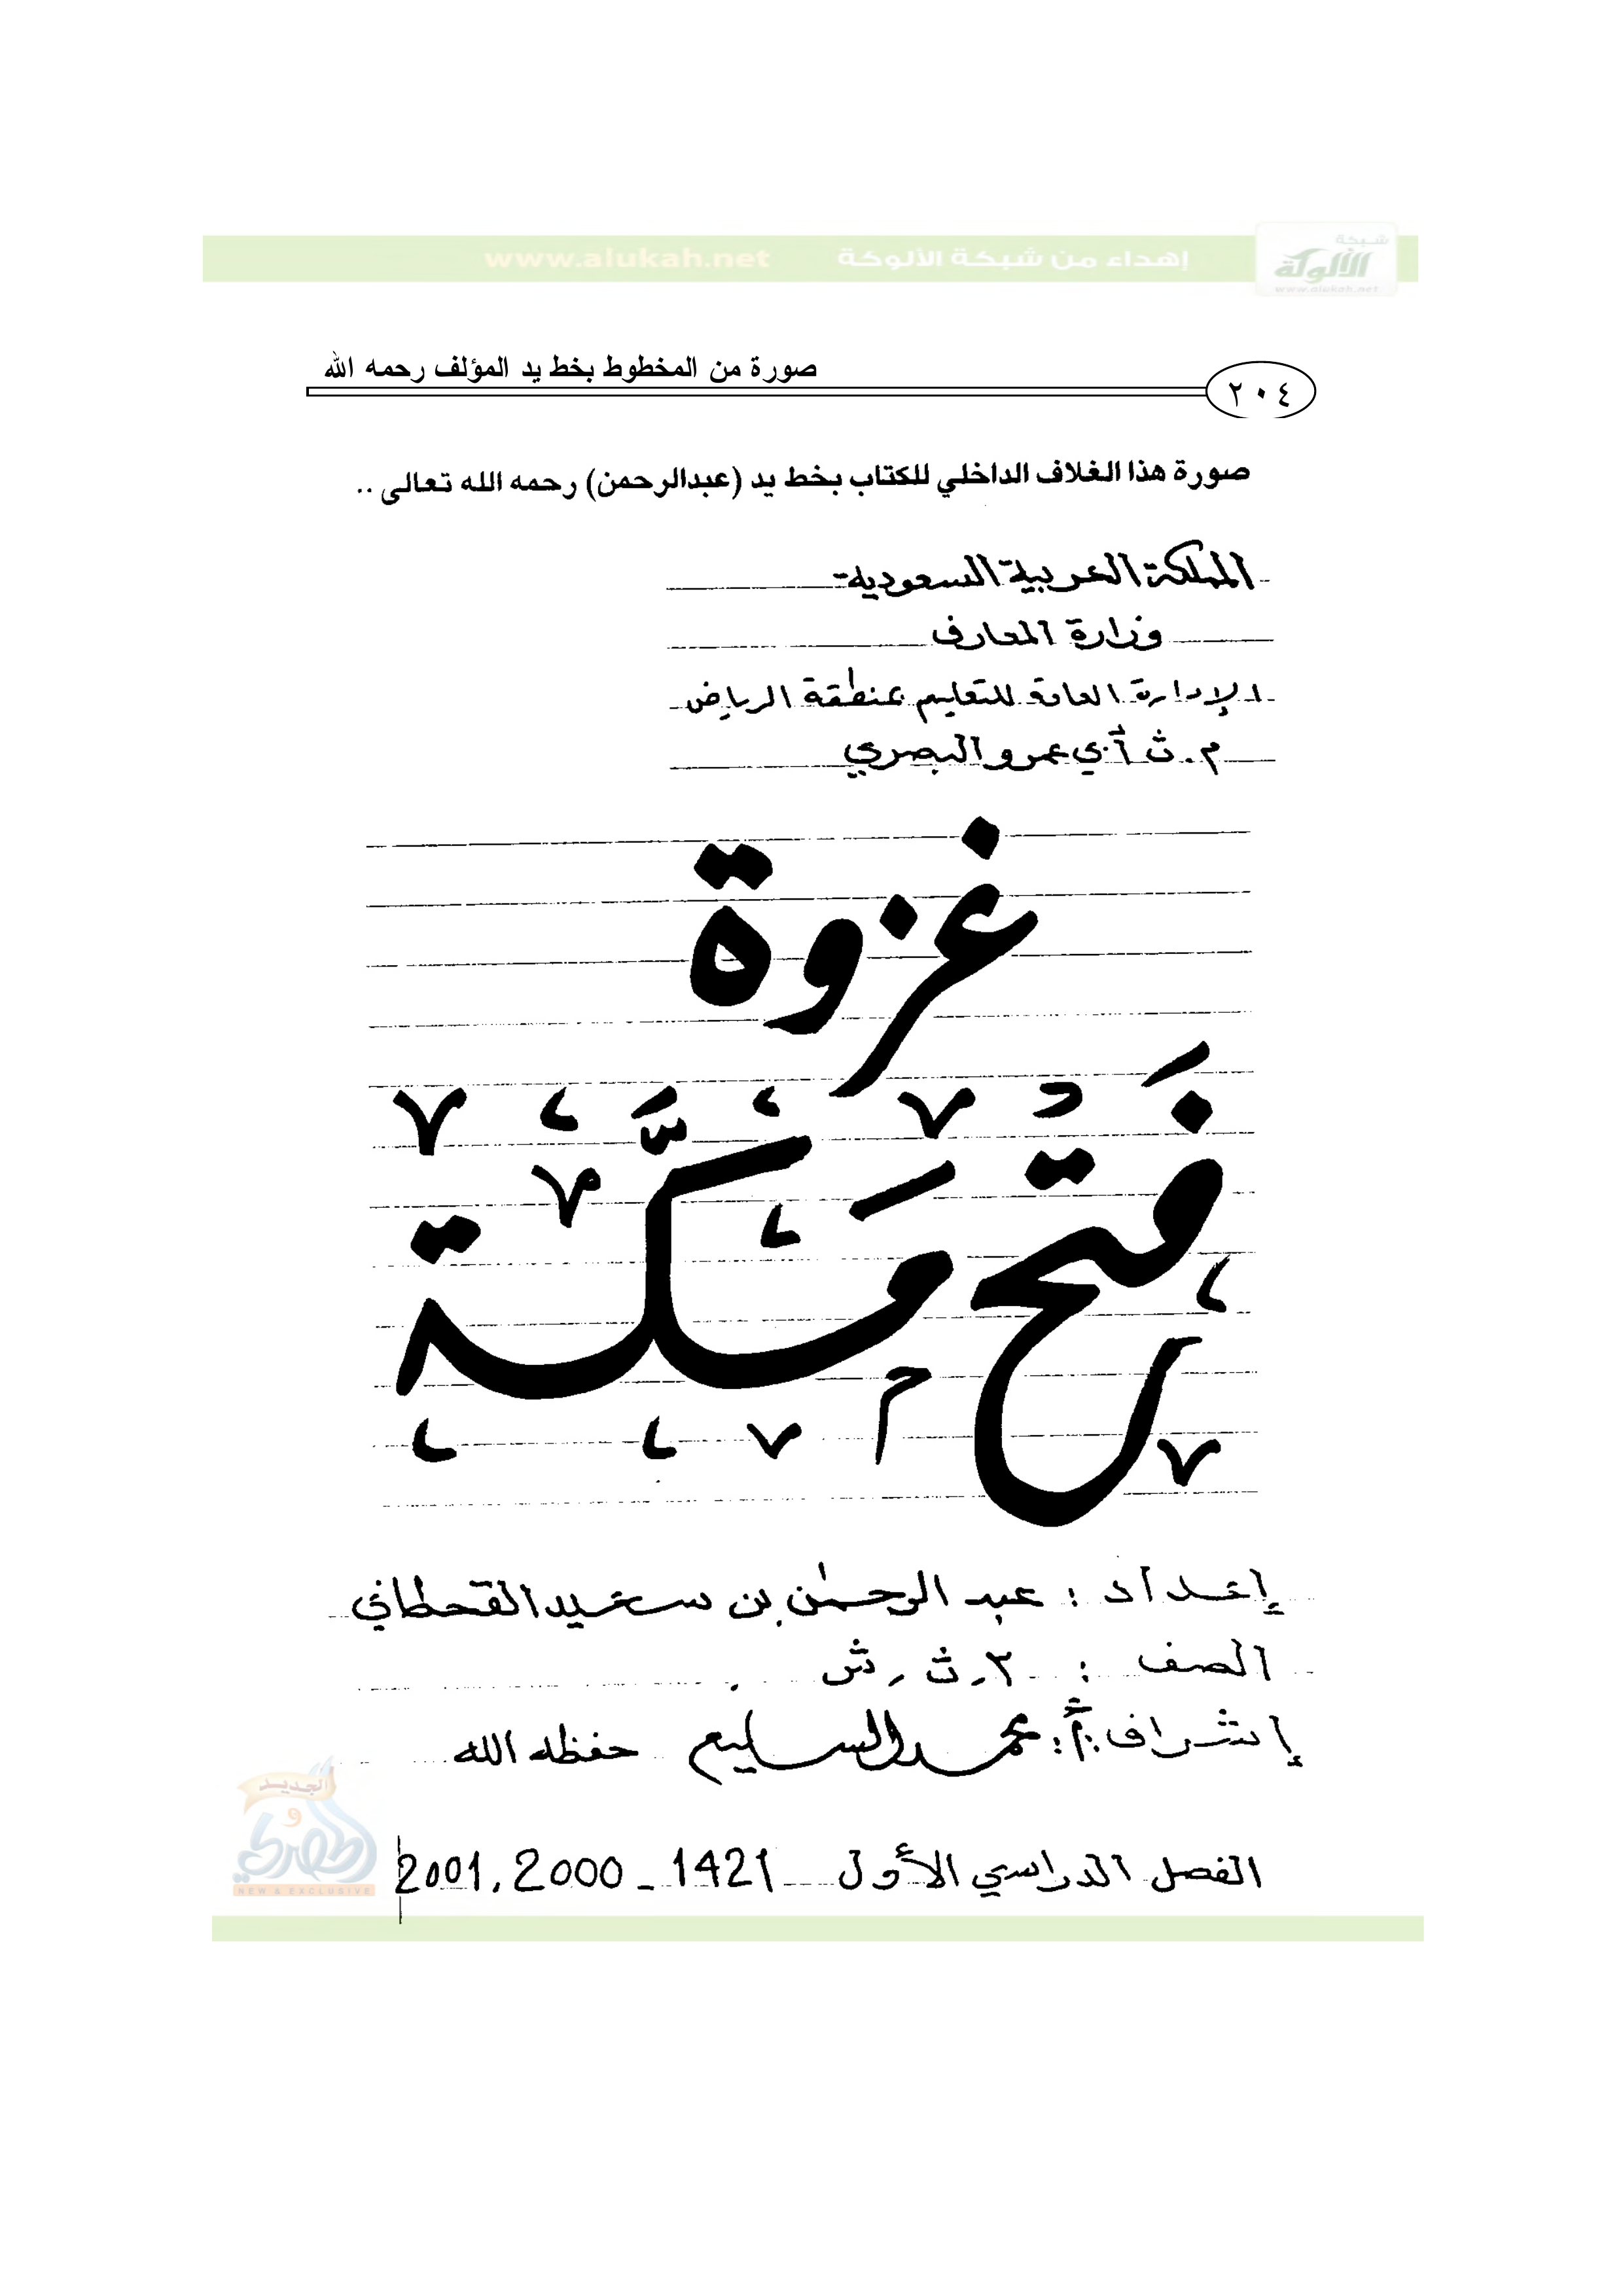 إهداء من شبكة الألوكة www.alukah.net
شبكة
الألوكة
www.alukah.net
٢٠٤ صورة من المخطوط بخط يد المؤلف رحمه الله
صورة هذا الغلاف الداخلي للكتاب بخط يد (عبدالرحمن) رحمه الله تعالى ..
المملكة العربية السعودية
وزارة المعارف
الإدارة العامة للتعليم بمنطقة الرياض
م. ث أبي عمرو البصري
غزوة
فَتْح مَكَّة
إعداد : عبد الرحمٰن بن سعيد القحطاني
الصف : ٣. ث. ش
إشراف أ: محمد السليم حفظه الله
الجديد
و
الحصري
NEW & EXCLUSIVE
الفصل الدراسي الأول 1421 - 2000, 2001